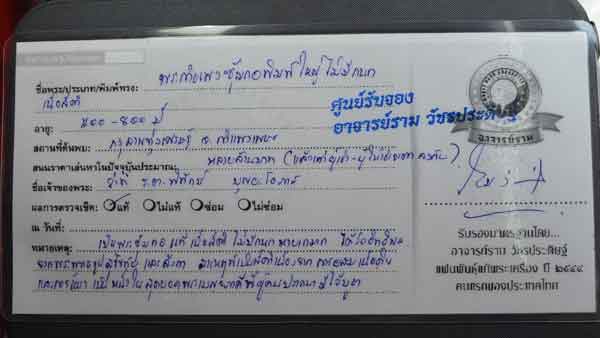 ชื่อพระ/ประเภท/พิมพ์ทรง: พระกำแพงซุ้มกอพิมพ์ใหญ่ ไม่มีกนก
เนื้อสีดำ
อายุ: ๖๐๐-๘๐๐ ปี
ศูนย์รับจอง
อาจารย์ราม วัชรประดิษฐ์
สถานที่ค้นพบ: กรุลานทุ่งเศรษฐี จ.กำแพงเพชร
สนนราคาเล่นหาในปัจจุบันประมาณ: หลายล้านบาท
ชื่อเจ้าของพระ: พิทักษ์
ผลการตรวจเช็ค: แท้ ไม่แท้ ซ่อม ไม่ซ่อม
ณ วันที่:
หมายเหตุ: เป็นพระซุ้มกอ แท้ เนื้อสีดำ ไม่มีกนก หายากมาก ได้รับอิทธิพล
จากพระพุทธรูปสุโขทัย และลังกา
อาจารย์ราม
รับรองมาตรฐานโดย...
อาจารย์ราม วัชรประดิษฐ์
แฟนพันธุ์แท้พระเครื่อง ปี ๒๕๔๔
คนแรกของประเทศไทย